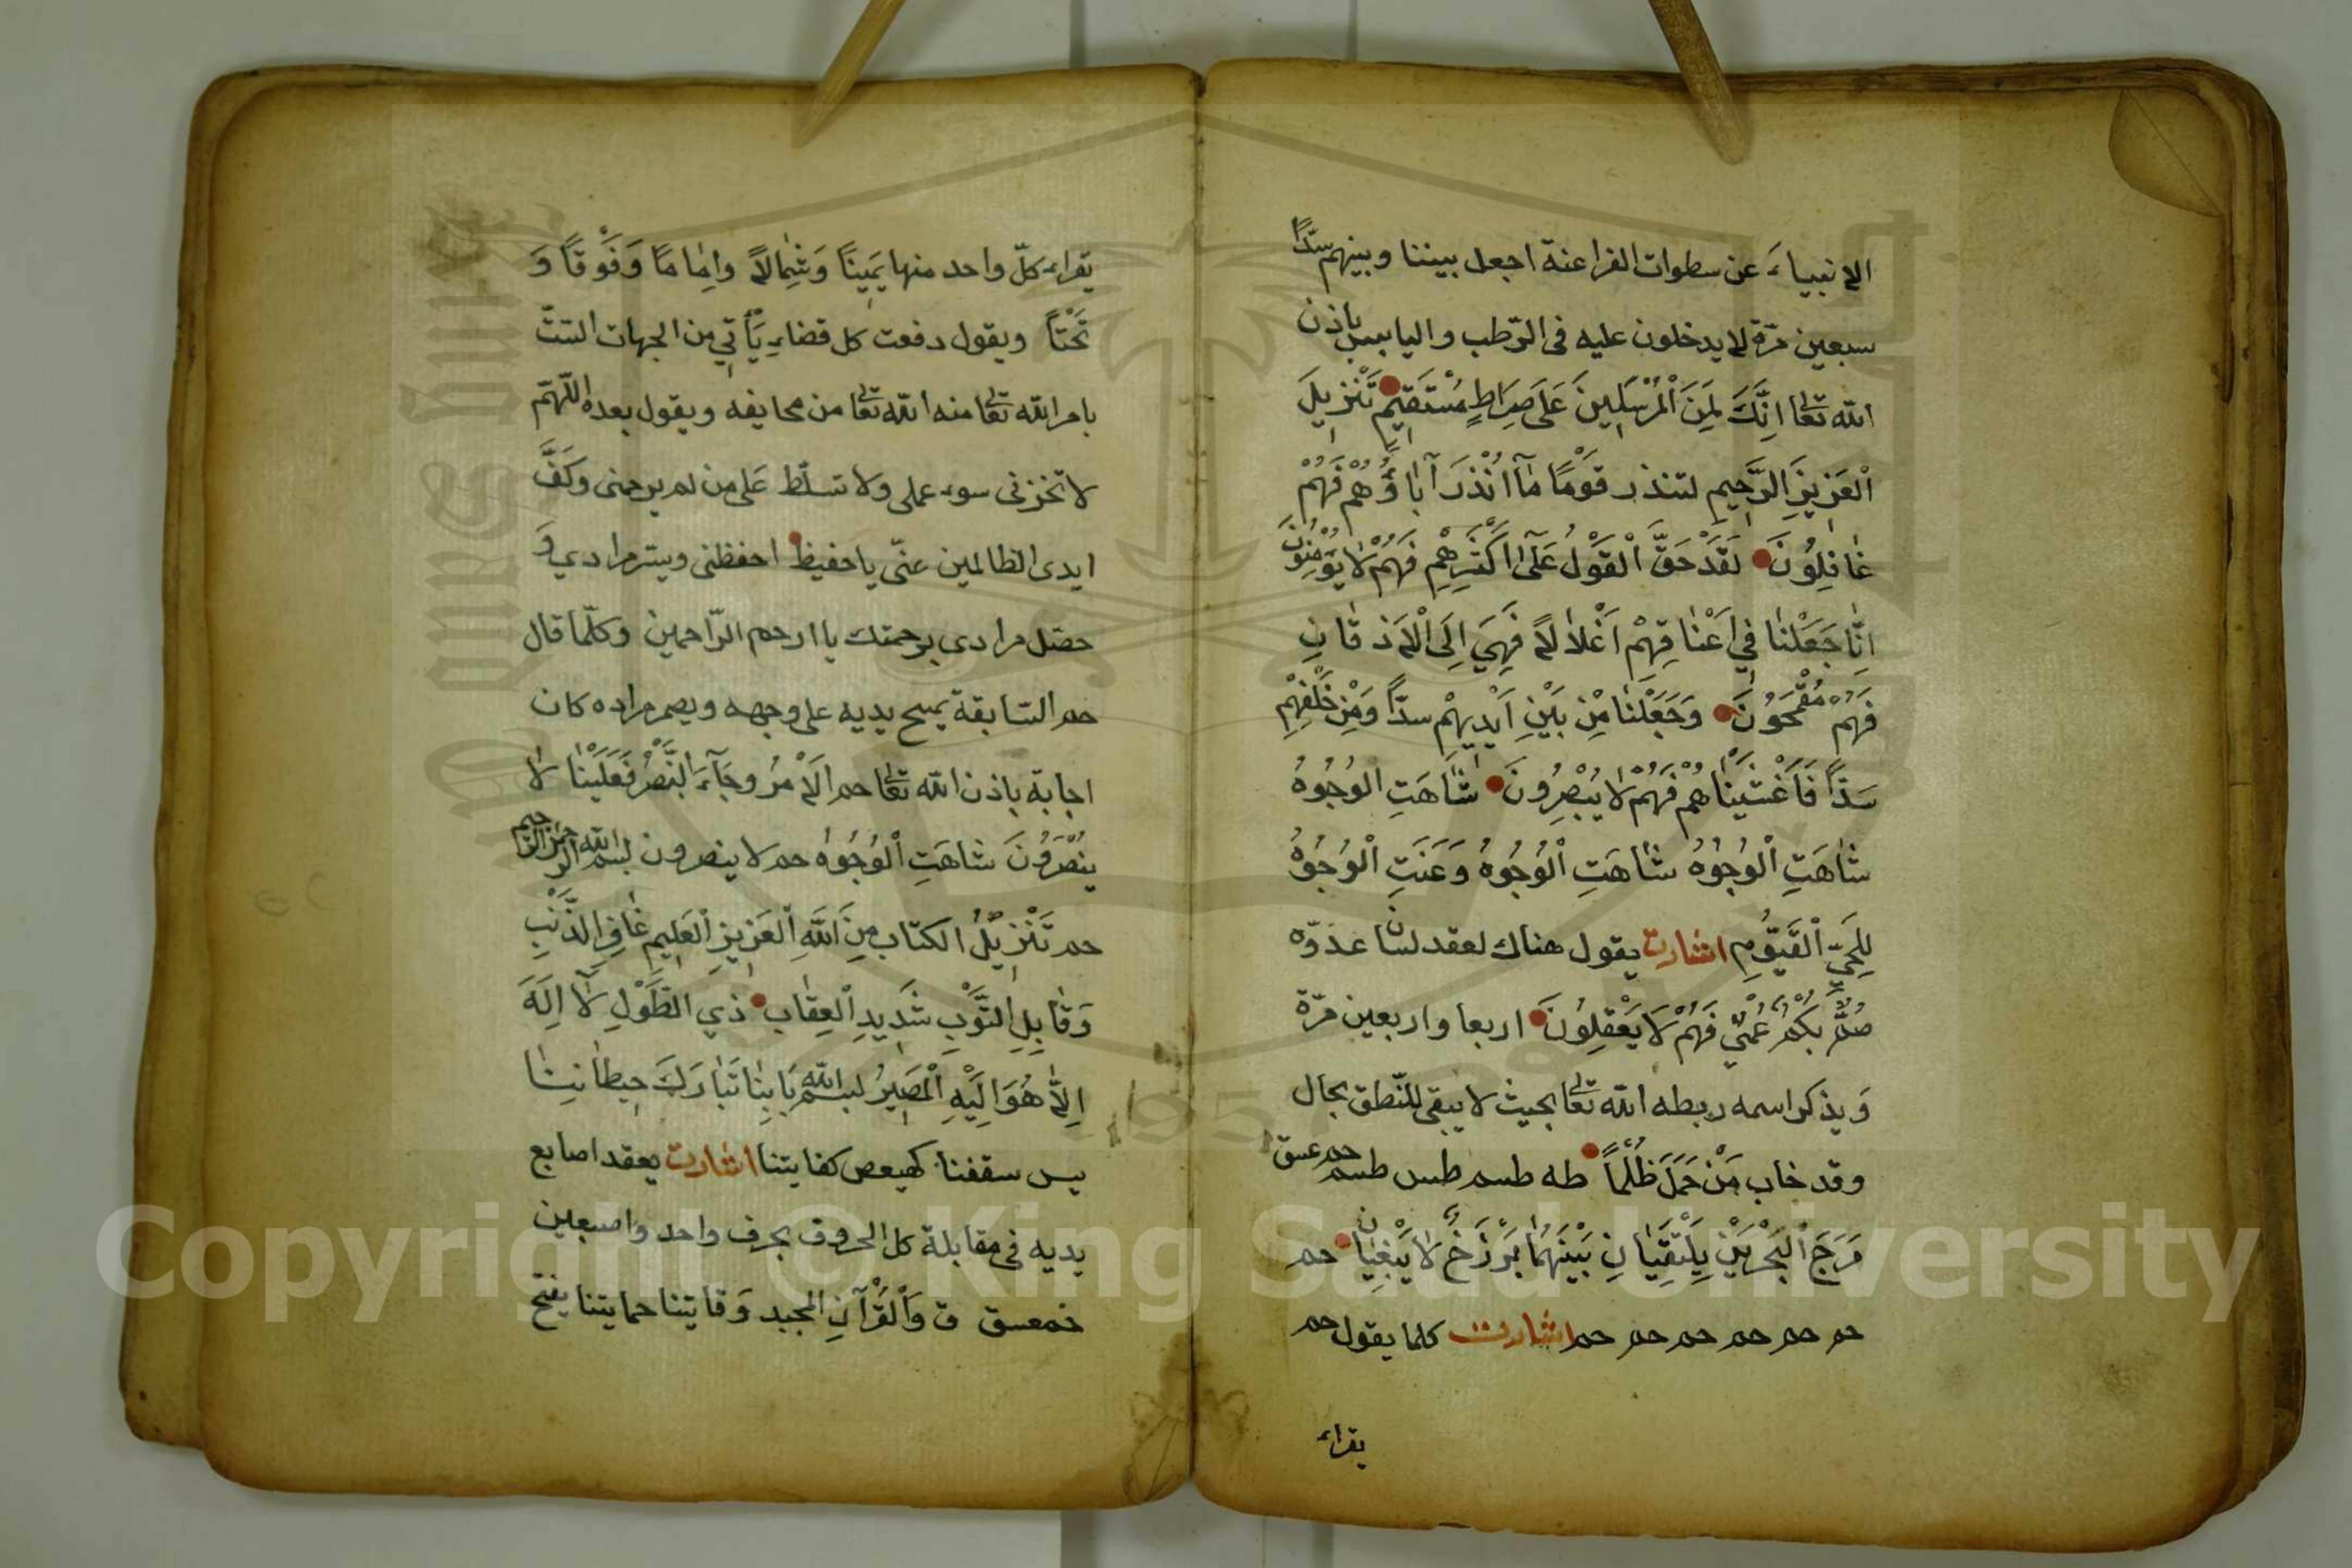 الانبياء عن سطوات الفراعنة اجعل بيننا وبينهم سدًّا
سبعين مرّة لا يدخلون عليه فى الرّطب واليابس باذن
الله تعالى اِنَّكَ لَمِنَ الْمُرْسَلِينَ عَلَى صِرَاطٍ مُسْتَقِيمٍ تَنْزِيلَ
الْعَزِيزِ الرَّحِيمِ لتنذر قَوْمًا مَآ اُنْذِرَ آبَاؤُهُمْ فَهُمْ
غَافِلُونَ لَقَدْ حَقَّ الْقَوْلُ عَلَى اَكْثَرِهِمْ فَهُمْ لَا يُؤْمِنُونَ
اِنَّا جَعَلْنَا فِي اَعْنَاقِهِمْ اَغْلَالًا فَهِيَ اِلَى الْاَذْقَانِ
فَهُمْ مُقْمَحُونَ وَجَعَلْنَا مِنْ بَيْنِ اَيْدِيهِمْ سدًّا وَمِنْ خَلْفِهِمْ
سَدًّا فَاَغْشَيْنَاهُمْ فَهُمْ لَا يُبْصِرُونَ شَاهَتِ الْوُجُوهُ
شَاهَتِ الْوُجُوهُ شَاهَتِ الْوُجُوهُ وَعَنَتِ الْوُجُوهُ
لِلْحَيِّ الْقَيُّومِ اشارت يقول هناك لعقد لسان عدوّه
صُمٌّ بُكْمٌ عُمْيٌ فَهُمْ لَا يَعْقِلُونَ اربعا واربعين مرّة
وَيذكر اسمه ربطه الله تعالى بحيث لا يبقى للنّطق بحال
وقد خاب مَنْ حَمَلَ ظُلْمًا طه طسم طس طسم حم عسق
مَرَجَ الْبَحْرَيْنِ يَلْتَقِيَانِ بَيْنَهُمَا بَرْزَخٌ لَا يَبْغِيَانِ حم
حم حم حم حم حم حم اشارت كلما يقول حم
يقراء
يقراء كلّ واحد منها يَمِينًا وَشِمَالًا وامَامًا وَفَوْقًا وَ
تَحْتًا ويقول دفعت كل قضاء يَأْتِي من الجهات الستّ
بامر الله تعالى منه الله تعالى من مخايفه ويقول بعده اللّهمّ
لا تخزنى سوء عملى ولا تسلّط عَلَى من لم يرحمنى وكَفَّ
ايدى الظالمين عنّى يا حفيظ احفظنى ويسّر مرادي وَ
حصّل مرادى برحمتك يا ارحم الرّاحمين وكلّما قال
حم السّابقة يمسح يديه على وجهه ويصم مراده كان
اجابة باذن الله تعالى حم الْاَمْرُ وجَآءَ النَّصْرُ فَعَلَيْنَا لَا
يُنْصَرُونَ شاهَتِ الْوُجُوهُ حم لا ينصرون بسم الله الرحمن الرحيم
حم تَنْزِيلُ الكتاب مِنَ اللّٰهِ الْعَزِيزِ الْعَلِيمِ غَافِرِ الذَّنْبِ
وَقَابِلِ التَّوْبِ شَدِيدِ الْعِقَابِ ذي الطَّوْلِ لَا اِلَهَ
اِلَّا هُوَ اِلَيْهِ الْمَصِيرُ بسم الله بَابُنَا تَبَارَكَ حِيطَانُنَا
يس سقفنا كهيعص كفايتنا اشارت يعقد اصابع
يديه فى مقابلة كل الحروف بحرف واحد واصبعين
حمعسق ق وَالْقُرْآنِ المجيد وَقَايتنا حمايتنا يفتح
Copyright © King Saud University